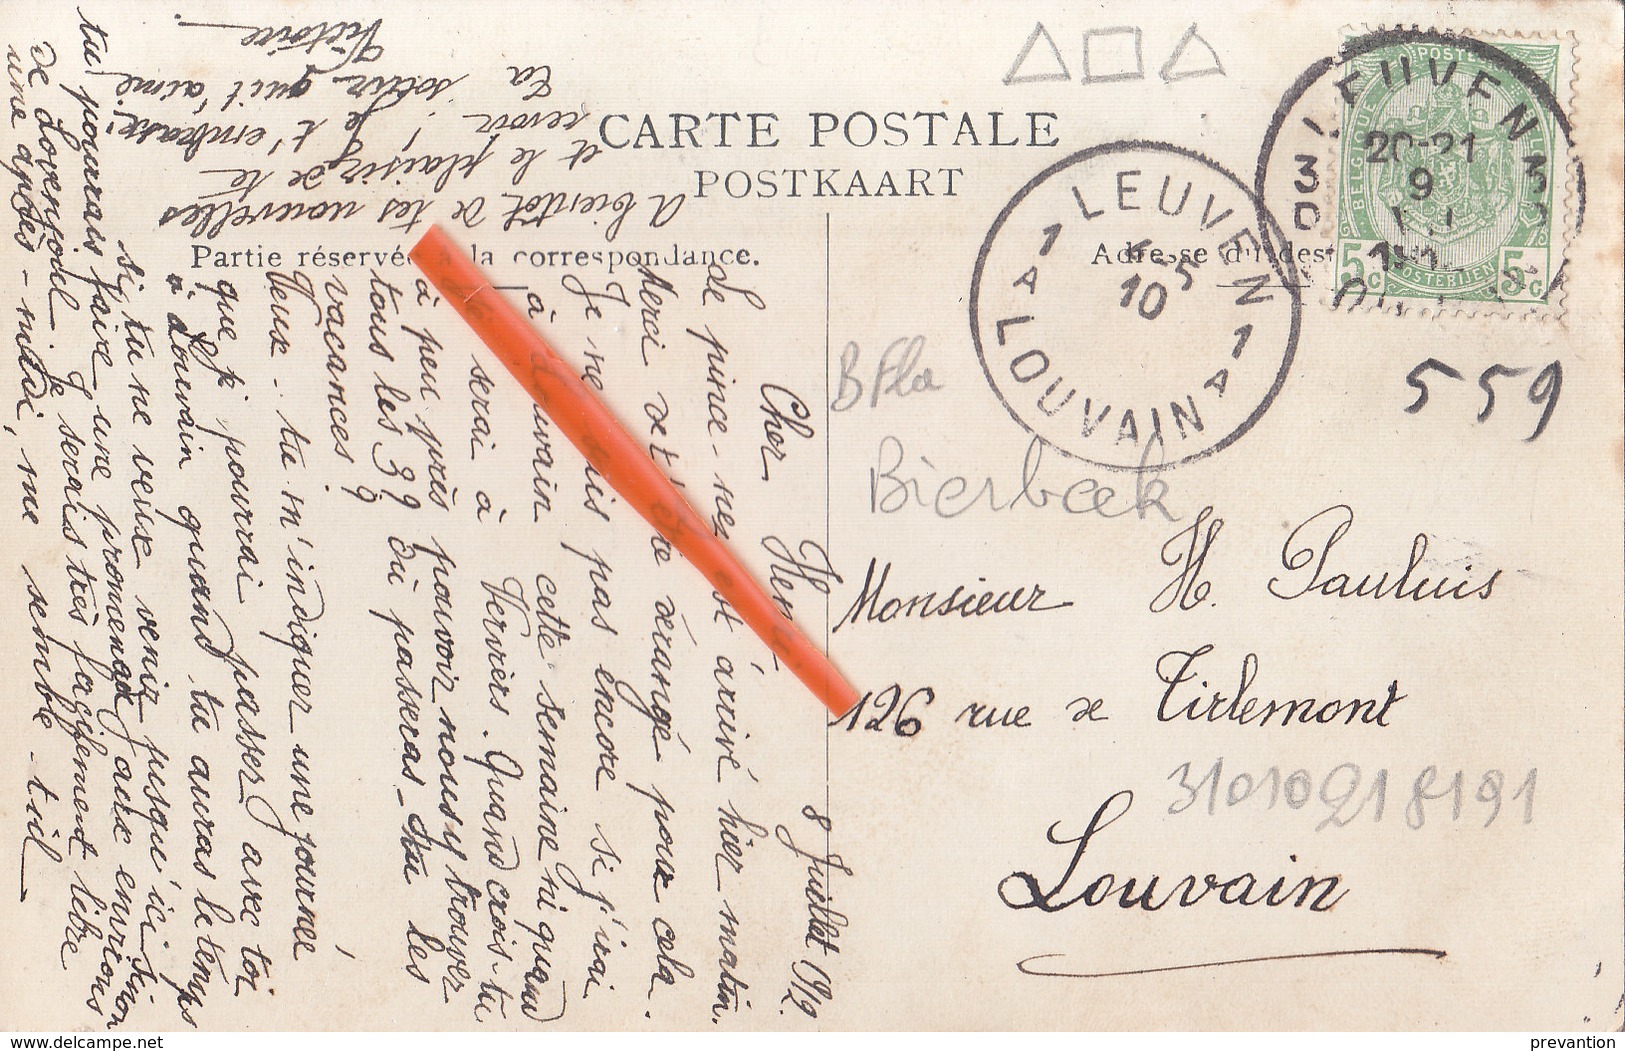 CARTE POSTALE
POSTKAART
Partie réservée à la correspondance.
Adresse du dest
LEUVEN
1 A
5-5
10
1 A
LOUVAIN
LEUVEN
20-21
9
30
POSTES
BELGIQUE
5c
POSTERIJEN
5c
559
B Fla
Bierbeek
Monsieur H. Pauluis
126 rue de Tirlemont
3101021 8191
Louvain
8 Juillet 1912
Cher Henri.
Le pince-nez est arrivé hier matin.
Merci de t'être dérangé pour cela.
Je ne sais pas encore si j'irai
à Louvain cette semaine ni quand
je serai à Verviers. Quand crois-tu
à peu près pouvoir nous y trouver
tous les 3 ? Où passeras-tu les
vacances ?
Veux-tu m'indiquer une journée
que je pourrai passer avec toi
à Louvain quand tu auras le temps
si tu ne veux venir jusqu'ici, sinon
tu pourrais faire une promenade aux environs
de Lovenjoel. Je serais très facilement libre
une après-midi, me semble-t-il
A bientôt de tes nouvelles
et le plaisir de te
revoir ! Je t'embrasse.
Ta sœur qui t'aime,
Victoire.
delcampe.net
prevantion